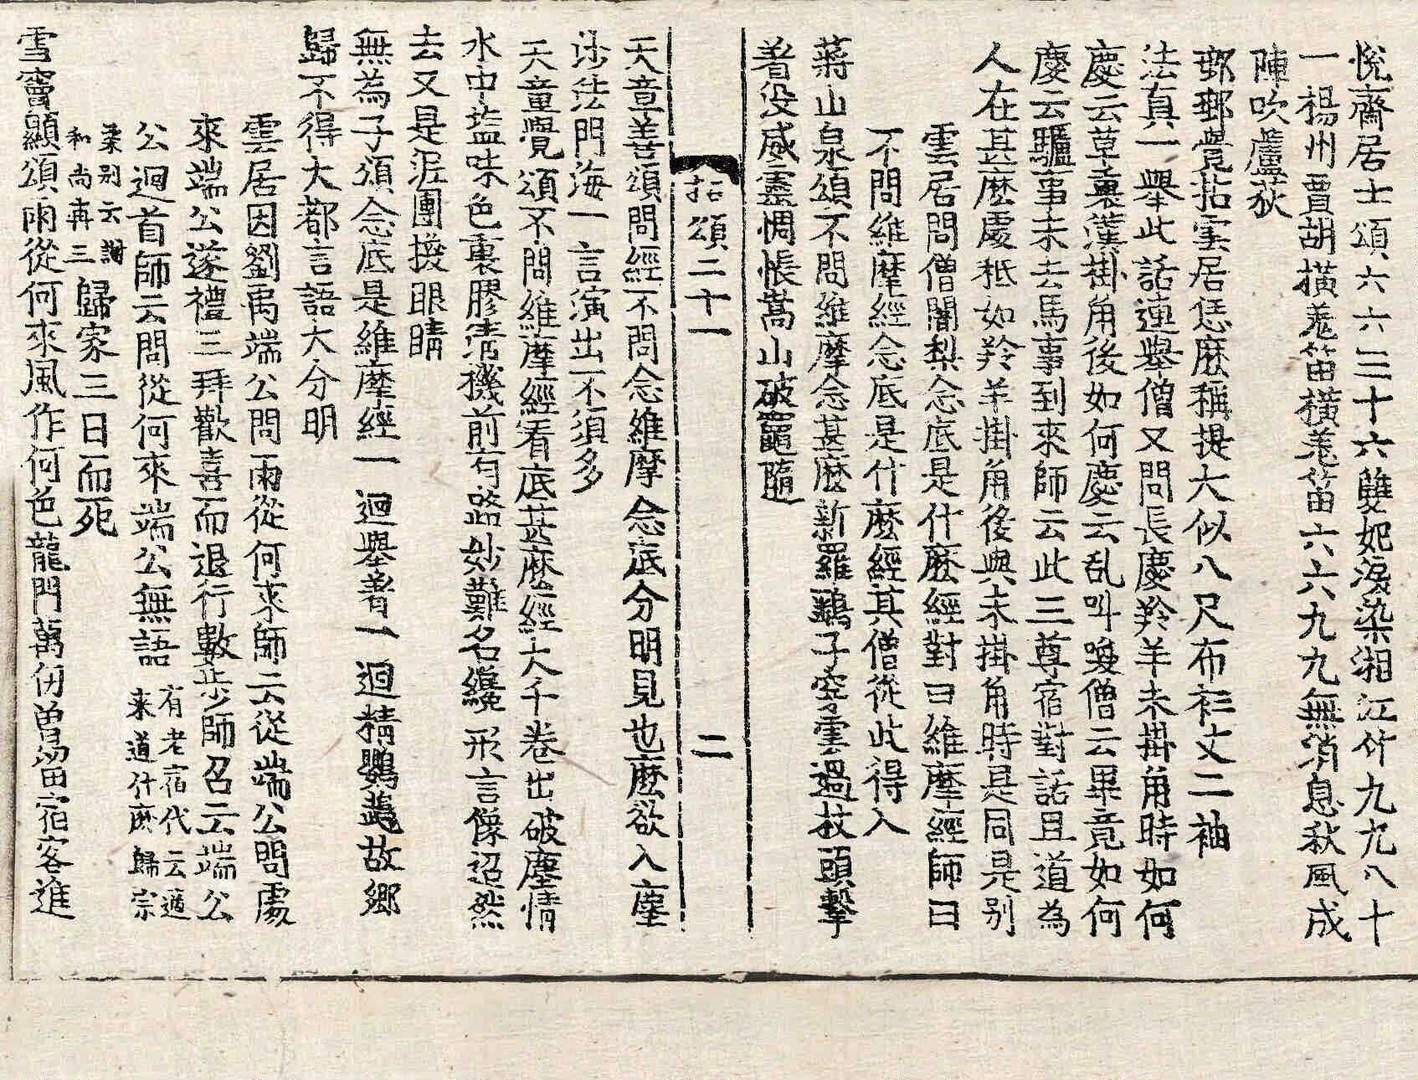 悅齋居士頌六六三十六雙妃淚染湘江竹九九八十
一楊州賈胡橫羗笛橫羗笛六六九九無消息秋風成
陣吹蘆荻
瑯瑘覺拈雲居恁麽稱提大似八尺布衫丈二袖
法真一舉此話連舉僧又問長慶羚羊未掛角時如何
慶云草裏漢掛角後如何慶云乱叫喚僧云畢竟如何
慶云驢事未去馬事到來師云此三尊宿對話且道為
人在甚麽處秪如羚羊掛角後與未掛角時是同是别
雲居問僧闍梨念底是什麽經對曰維摩經師曰
不問維摩經念底是什麽經其僧從此得入
蔣山泉頌不問維摩念甚麽新羅鷂子穿雲過拄頭擊
着没威靈惆悵嵩山破竈墮
拈頌二十一 二
天章善頌問經不問念維摩念底分明見也麽欲入塵
沙法門海一言演出不須多
天童覺頌不問維摩經看底甚麽經大千卷出破塵情
水中塩味色裏膠清機前有路妙難名纔形言像迢然
去又是泥團換眼睛
無為子頌念底是維摩經一迴舉着一迴精鸚鵡故鄉
歸不得大都言語大分明
雲居因劉禹端公問雨從何來師云從端公問處
來端公遂禮三拜歡喜而退行數步師召云端公
公迴首師云問從何來端公無語有老宿代云適
来道什麽歸宗
柔别云謝
和尚再三歸家三日而死
雪竇顯頌雨從何來風作何色龍門萬仞曽留宿客進